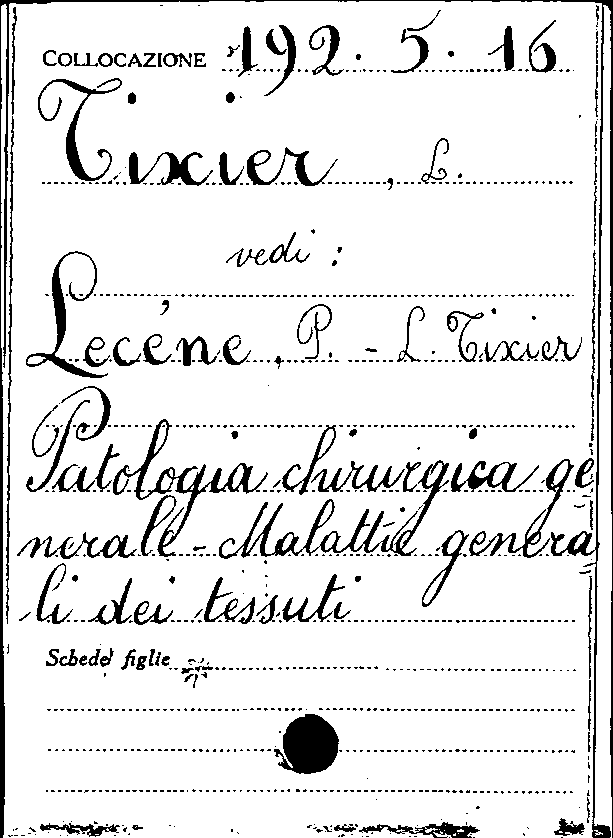 COLLOCAZIONE 192. 5. 16
Tixier, L.
vedi:
Lecéne, P. - L. Tixier
Patologia chirurgica ge
nerale - Malattie genera
li dei tessuti
Schede figlie